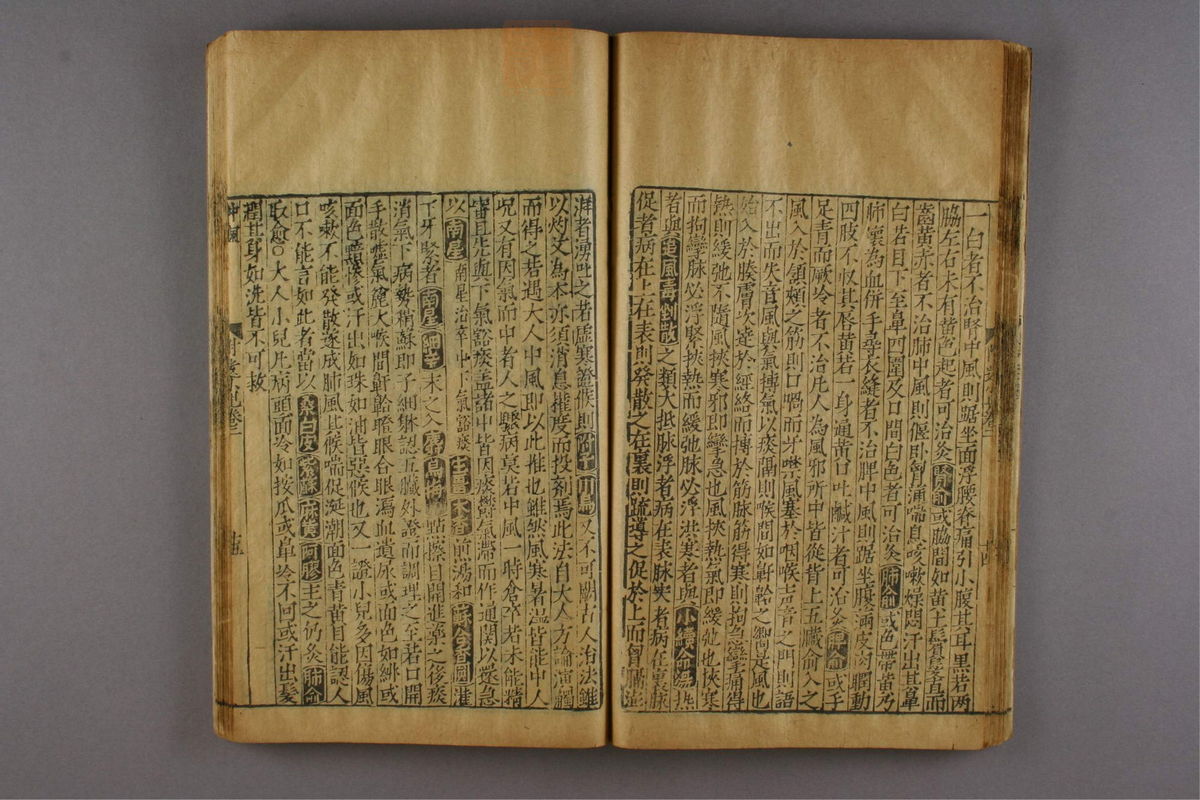 一白者不治腎中風則踞坐面浮腰脊痛引小腹其耳黑若兩
脇左右未有黄色起者可治灸腎俞或脇間如黄土鬢髮直而
齒黄赤者不治肺中風則偃卧胷滿喘息咳嗽燥悶汗出其鼻
白若目下至鼻四圍及口間白色者可治灸肺俞或色帶黄乃
肺裏為血併手尋衣縫者不治脾中風則踞坐腹滿皮肉瞤動
四肢不収其唇黄若一身通黄口吐鹹汁者可治灸脾俞或手
足青而厥冷者不治凢人為風邪所中皆從背上五臟俞入之
風入於頷頰之筋則口喎而牙噤風塞於咽喉声音之門則語
不出而失音風與氣搏氣以痰隔則喉間如鼾齁之嚮是風也
始入於腠膚次逹於經絡而搏於筋脉筋得寒則拘急攣痛得
熱即緩弛不隨風挾寒邪即攣急也風挾熱氣即緩弛也挾寒
而拘攣脉必浮緊挾熱而緩弛脉必浮洪寒者與小續命湯熱
者與 風毒剉散之類大抵脉浮者病在表脉實者病在裏脉
促者病在上在表則發散之在裏則疏導之促於上而胷膈澎
湃者湧吐之若虛寒證候則附子川烏又不可缺古人治法雖
以灼艾為本亦須消息摧度而投劑焉此法自大人方論演繹
而得之若遇大人中風即以此推也雖然風寒暑濕皆能中人
况又有因氣而中者人之 病莫若中風一時倉卒者未能精
審且先與下氣豁痰盖諸中皆因痰 氣滯而作通関以還急
以南星 南星治卒中下氣豁痰 生薑木香煎湯和蘇合香圓灌
下牙緊者南星細辛末之入 烏梅 擦目開進藥之後痰
消氣下病勢稍蘇即子細辨認五臟外證而調理之至若口開
手散虛氣 大喉間鼾齁瞻眼合眼瀉血遺尿或面色如緋或
面色黯慘或汗出如珠如油皆惡候也又一證小兒多因傷風
咳嗽不能發散遂成肺風其候喘促涎潮面色青黄目能認人
口不能言如此者當以桑白皮紫蘇麻黄阿膠主之仍灸肺俞
取愈○大人小兒凢病頭面冷如按瓜或鼻冷不囘或汗出髮
潤其身如洗皆不可救
中風